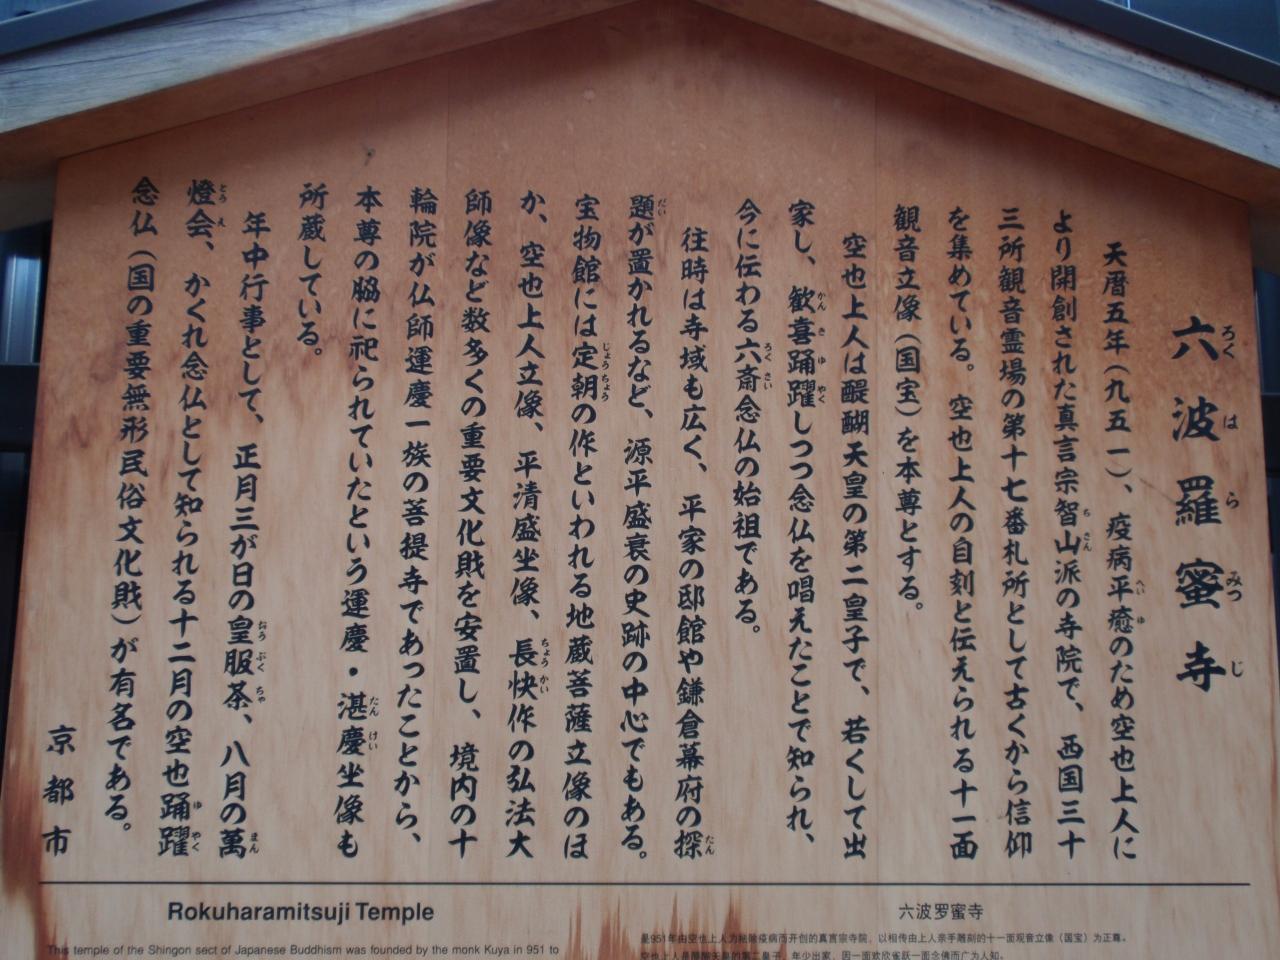 六波羅蜜寺
天暦五年（九五一）、疫病平癒のため空也上人に
より開創された真言宗智山派の寺院で、西国三十
三所観音霊場の第十七番札所として古くから信仰
を集めている。空也上人の自刻と伝えられる十一面
観音立像（国宝）を本尊とする。
空也上人は醍醐天皇の第二皇子で、若くして出
家し、歓喜踊躍しつつ念仏を唱えたことで知られ、
今に伝わる六斎念仏の始祖である。
往時は寺域も広く、平家の邸館や鎌倉幕府の探
題が置かれるなど、源平盛衰の史跡の中心でもある。
宝物館には定朝の作といわれる地蔵菩薩立像のほ
か、空也上人立像、平清盛坐像、長快作の弘法大
師像など数多くの重要文化財を安置し、境内の十
輪院が仏師運慶一族の菩提寺であったことから、
本尊の脇に祀られていたという運慶・湛慶坐像も
所蔵している。
年中行事として、正月三が日の皇服茶、八月の萬
燈会、かくれ念仏として知られる十二月の空也踊躍
念仏（国の重要無形民俗文化財）が有名である。
京都市
Rokuharamitsuji Temple
This temple of the Shingon sect of Japanese Buddhism was founded by the monk Kuya in 951 to
六波罗蜜寺
是951年由空也上人为祛除疫病而开创的真言宗寺院，以相传由上人亲手雕刻的十一面观音立像（国宝）为正尊。
空也上人是醍醐天皇的第二皇子，年少出家，因一面欢欣雀跃一面念佛而广为人知。